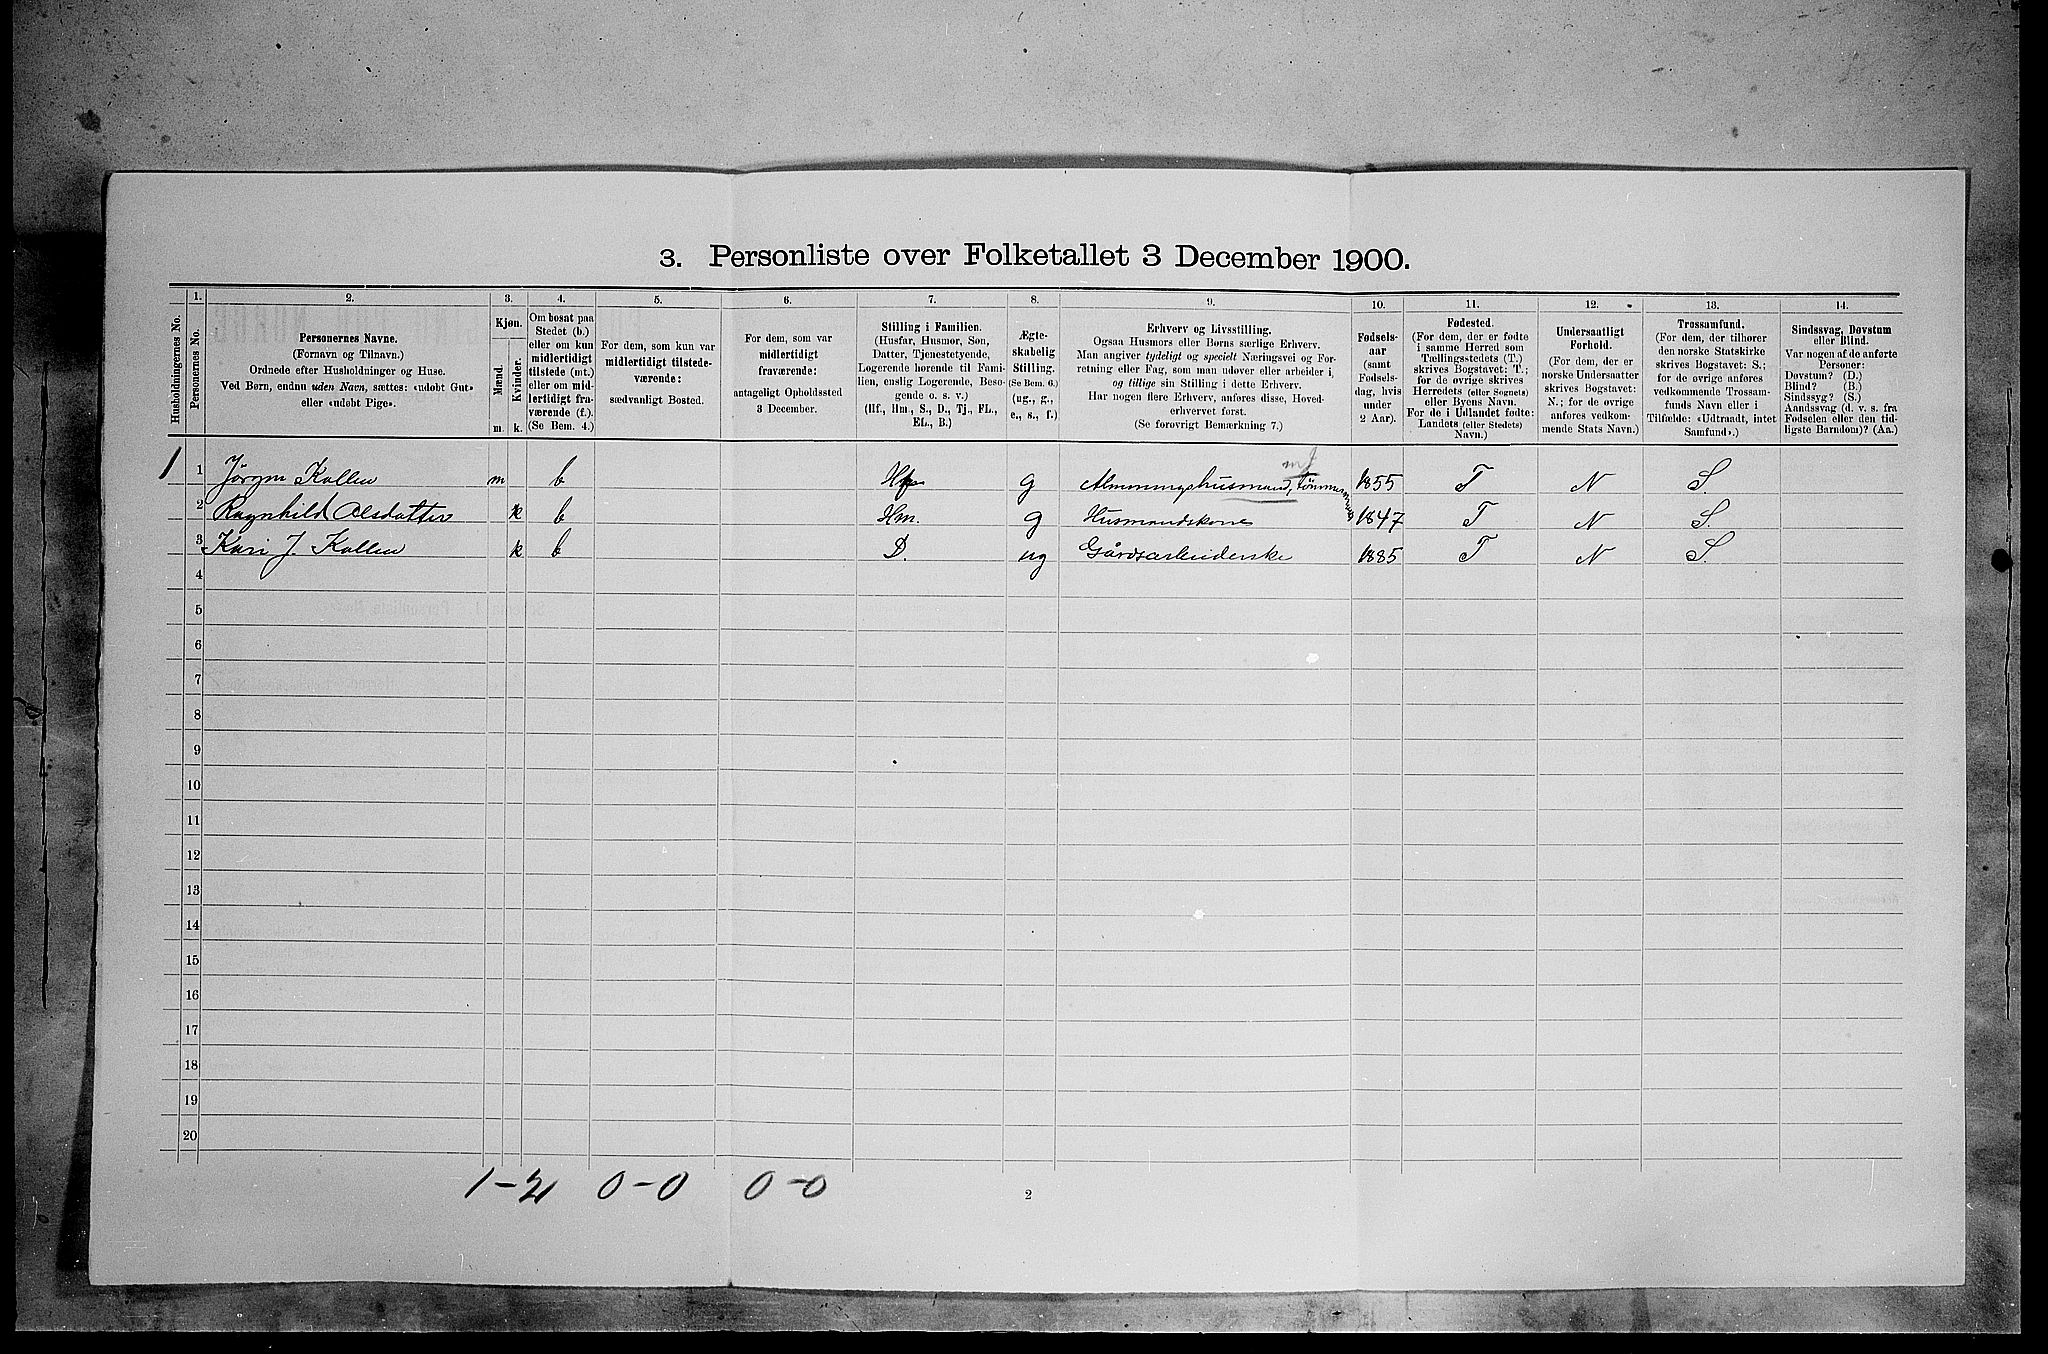 3. Personliste over Folketallet 3 December 1900.
Husholdningernes No.
1.
Personernes No.
2.
Personernes Navne.
(Fornavn og Tilnavn.)
Ordnede efter Husholdninger og Huse.
Ved Børn, endnu uden Navn, sættes: «udøbt Gut»
eller «udøbt Pige».
3.
Kjøn.
Mænd.
Kvinder.
m.
k.
4.
Om bosat paa
Stedet (b.)
eller om kun
midlertidigt
tilstede (mt.)
eller om mid-
lertidigt fra-
værende (f.).
(Se Bem. 4.)
5.
For dem, som kun var
midlertidigt tilstede-
værende:
sædvanligt Bosted.
6.
For dem, som var
midlertidigt
fraværende:
antageligt Opholdssted
3 December.
7.
Stilling i Familien.
(Husfar, Husmor, Søn,
Datter, Tjenestetyende,
Logerende hørende til Fami-
lien, enslig Logerende, Besø-
gende o. s. v.)
(Hf., Hm., S., D., Tj., FL.,
EL., B.)
8.
Ægte-
skabelig
Stilling.
(Se Bem. 6.)
(ug., g.,
e., s., f.)
9.
Erhverv og Livsstilling.
Ogsaa Husmors eller Børns særlige Erhverv.
Man angiver tydeligt og specielt Næringsvei og For-
retning eller Fag, som man udøver eller arbeider i,
og tillige sin Stilling i dette Erhverv.
Har nogen flere Erhverv, anføres disse, Hoved-
erhvervet først.
(Se forøvrigt Bemærkning 7.)
10.
Fødsels-
aar
(samt
Fødsels-
dag, hvis
under
2 Aar).
11.
Fødested.
(For dem, der er fødte
i samme Herred som
Tællingsstedets (T.)
skrives Bogstavet: T.;
for de øvrige skrives
Herredets (eller Sognets)
eller Byens Navn.
For de i Udlandet fødte:
Landets (eller Stedets)
Navn.)
12.
Undersaatligt
Forhold.
(For dem, der er
norske Undersaatter
skrives Bogstavet:
N.; for de øvrige
anføres vedkom-
mende Stats Navn.)
13.
Trossamfund.
(For dem, der tilhører
den norske Statskirke
skrives Bogstavet: S.;
for de øvrige anføres
vedkommende Trossam-
funds Navn eller i
Tilfælde: «Udtraadt, intet
Samfund».)
14.
Sindssvag, Døvstum
eller Blind.
Var nogen af de anførte
Personer:
Døvstum? (D.)
Blind? (B.)
Sindssyg? (S.)
Aandssvag (d. v. s. fra
Fødselen eller den tid-
ligste Barndom)? (Aa.)
1 1 Jörgen Kallen m b Hf g Almenningshusmand, 1855 T N S.
2 Ragnhild Olsdatter k b Hm. g Husmandskone 1847 T N S.
3 Kari J. Kallen k b D. ug Gårdsarbeiderske 1885 T N S.
4
5
6
7
8
9
10
11
12
13
14
15
16
17
18
19
20
1-2 0-0 0-0
2